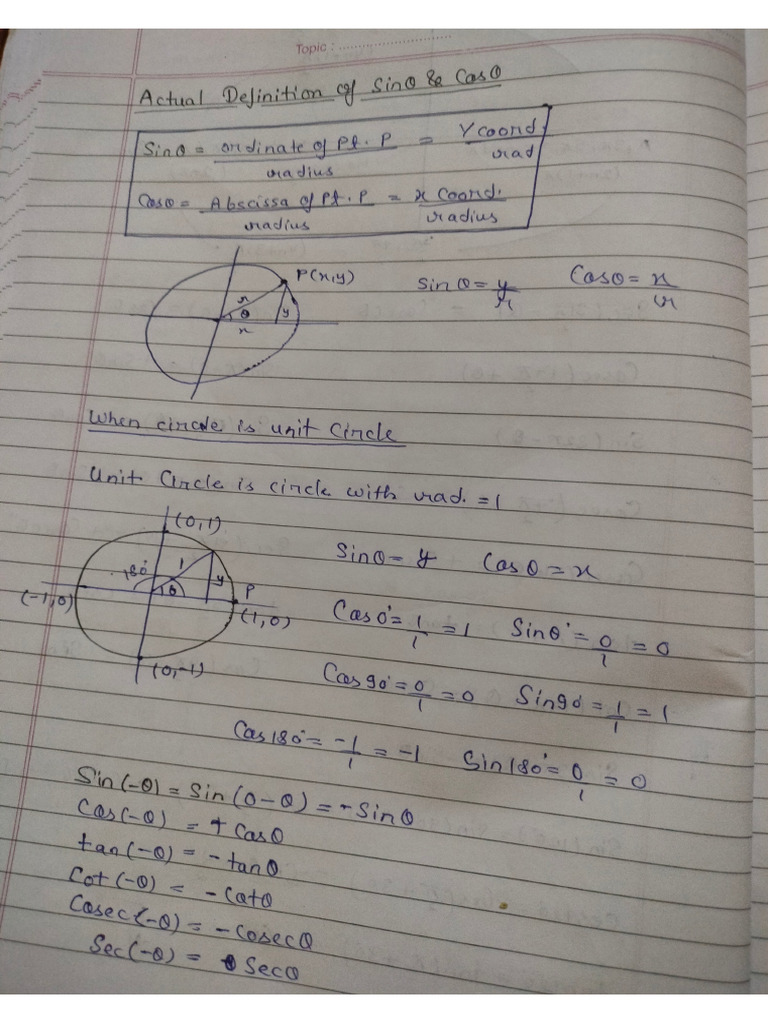 Topic : ..............................
Actual Definition of Sinθ & Cosθ
Sinθ = ordinate of Pt. P / radius = Y coord. / rad
Cosθ = Abscissa of Pt. P / radius = x Coord. / radius
P(x,y)
r
θ
y
x
Sinθ = y/r Cosθ = x/r
When circle is unit Circle
Unit Circle is circle with rad. = 1
(0,1)
180°
1
y
θ
P
(-1,0)
(1,0)
(0,-1)
Sinθ = y Cosθ = x
Cos0° = 1/1 = 1 Sin0° = 0/1 = 0
Cos90° = 0/1 = 0 Sin90° = 1/1 = 1
Cos180° = -1/1 = -1 Sin180° = 0/1 = 0
Sin(-θ) = Sin(0-θ) = -Sinθ
Cos(-θ) = +Cosθ
tan(-θ) = -tanθ
Cot(-θ) = -Cotθ
Cosec(-θ) = -Cosecθ
Sec(-θ) = Secθ